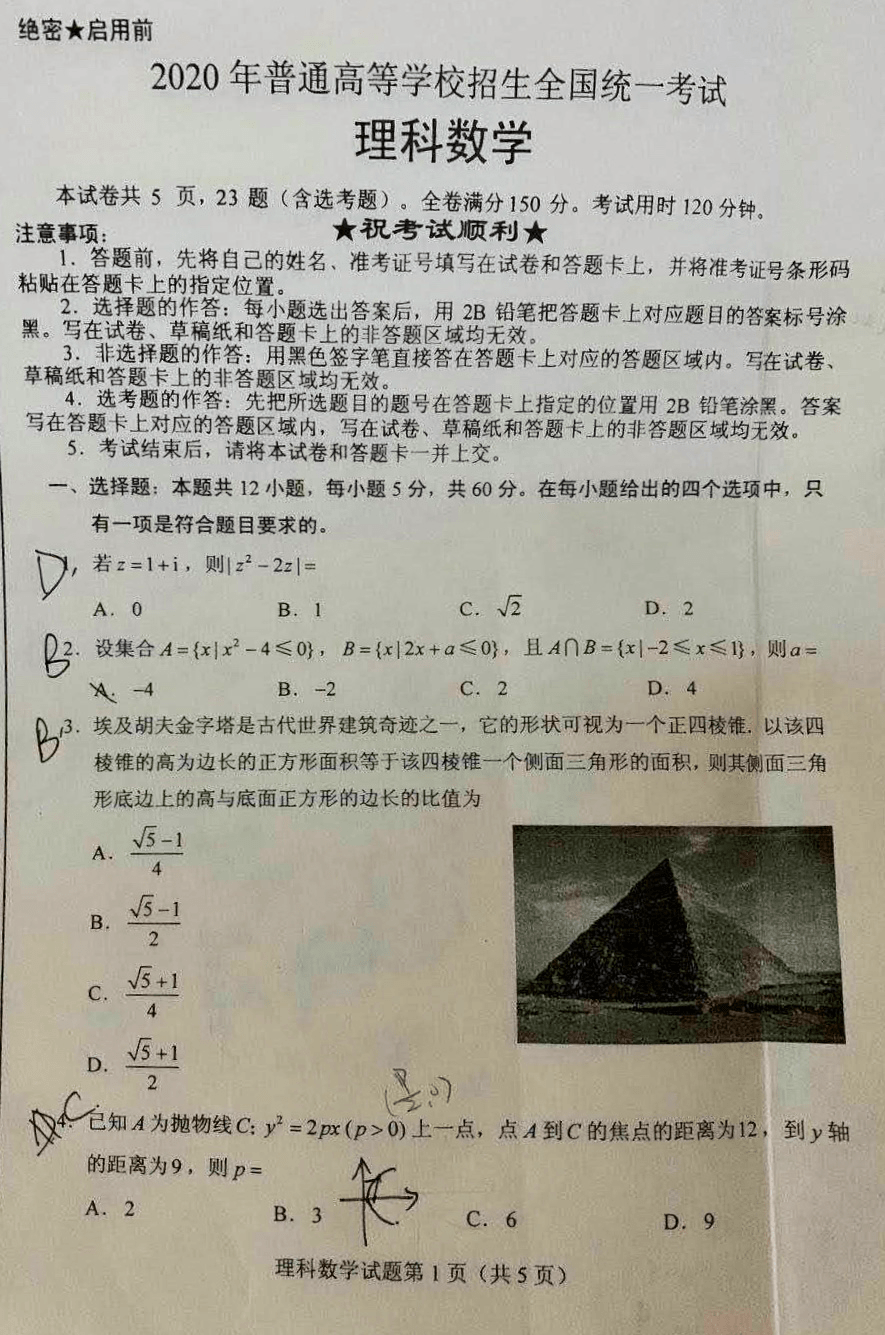 绝密★启用前
2020 年普通高等学校招生全国统一考试
理科数学
本试卷共 5 页，23 题（含选考题）。全卷满分 150 分。考试用时 120 分钟。
★祝考试顺利★
注意事项：
1．答题前，先将自己的姓名、准考证号填写在试卷和答题卡上，并将准考证号条形码
粘贴在答题卡上的指定位置。
2．选择题的作答：每小题选出答案后，用 2B 铅笔把答题卡上对应题目的答案标号涂
黑。写在试卷、草稿纸和答题卡上的非答题区域均无效。
3．非选择题的作答：用黑色签字笔直接答在答题卡上对应的答题区域内。写在试卷、
草稿纸和答题卡上的非答题区域均无效。
4．选考题的作答：先把所选题目的题号在答题卡上指定的位置用 2B 铅笔涂黑。答案
写在答题卡上对应的答题区域内，写在试卷、草稿纸和答题卡上的非答题区域均无效。
5．考试结束后，请将本试卷和答题卡一并上交。
一、选择题：本题共 12 小题，每小题 5 分，共 60 分。在每小题给出的四个选项中，只
有一项是符合题目要求的。
D 1．若 z=1+i，则|z²-2z|=
A．0 B．1 C．√2 D．2
B 2．设集合 A={x|x²-4≤0}，B={x|2x+a≤0}，且 A∩B={x|-2≤x≤1}，则 a=
A．-4 B．-2 C．2 D．4
B 3．埃及胡夫金字塔是古代世界建筑奇迹之一，它的形状可视为一个正四棱锥．以该四
棱锥的高为边长的正方形面积等于该四棱锥一个侧面三角形的面积，则其侧面三角
形底边上的高与底面正方形的边长的比值为
A．(√5-1)/4
B．(√5-1)/2
C．(√5+1)/4
D．(√5+1)/2
C 4．已知 A 为抛物线 C：y²=2px(p>0)上一点，点 A 到 C 的焦点的距离为12，到 y 轴
的距离为9，则 p=
A．2 B．3 C．6 D．9
理科数学试题第 1 页（共 5 页）